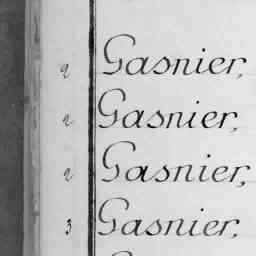 2 Gasnier,
2 Gasnier,
2 Gasnier,
3 Gasnier,